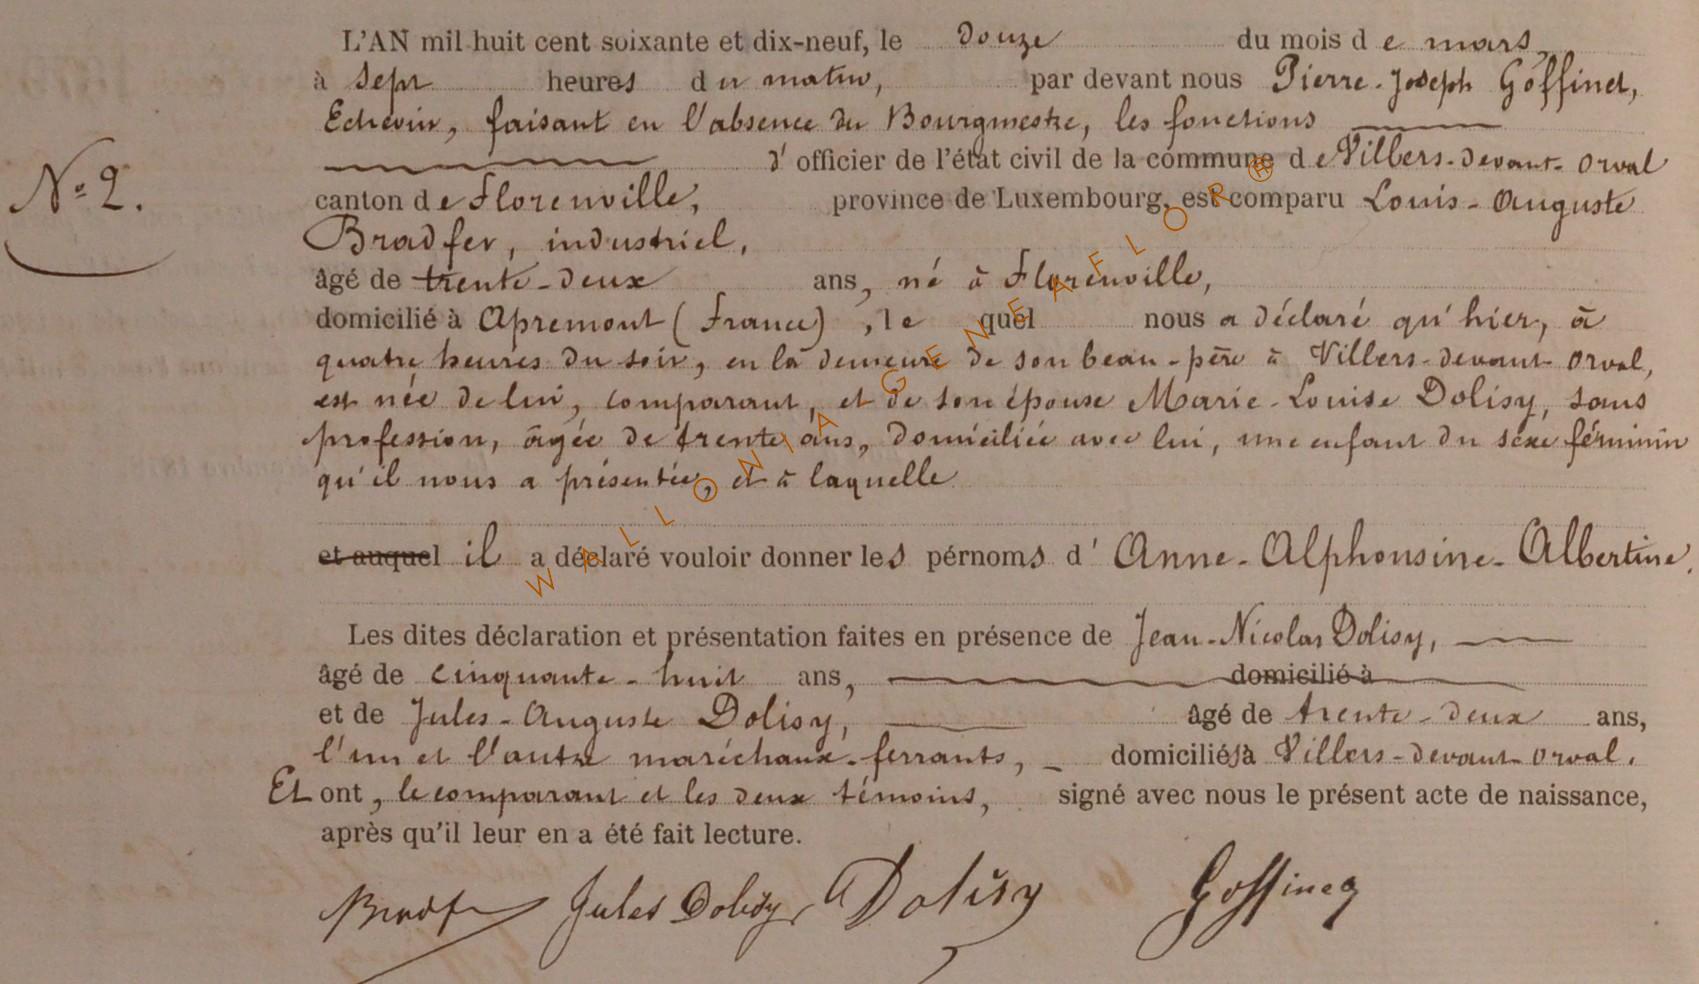 L'AN mil huit cent soixante et dix-neuf, le douze du mois de mars,
à sept heures du matin, par devant nous Pierre-Joseph Goffinet,
Echevin, faisant en l'absence du Bourgmestre, les fonctions
d'officier de l'état civil de la commune de Villers-devant-Orval
N° 2.
canton de Florenville, province de Luxembourg, est comparu Louis-Auguste
Bradfer, industriel,
âgé de trente-deux ans, né à Florenville,
domicilié à Apremont (France), lequel nous a déclaré qu'hier, à
quatre heures du soir, en la demeure de son beau-père à Villers-devant-Orval,
est née de lui, comparant, et de son épouse Marie-Louise Dolisy, sans
profession, âgée de trente ans, domiciliée avec lui, une enfant du sexe féminin
qu'il nous a présentée, et à laquelle
et auquel il a déclaré vouloir donner les pérnoms d'Anne-Alphonsine-Albertine.
Les dites déclaration et présentation faites en présence de Jean-Nicolas Dolisy,
âgé de cinquante-huit ans, domicilié à
et de Jules-Auguste Dolisy, âgé de trente-deux ans,
l'un et l'autre maréchaux-ferrants, domiciliés à Villers-devant-Orval.
Et ont, le comparant et les deux témoins, signé avec nous le présent acte de naissance,
après qu'il leur en a été fait lecture.
Bradfer Jules Dolisy Dolisy Goffinet
WALLONIA GENEAFLOR ®